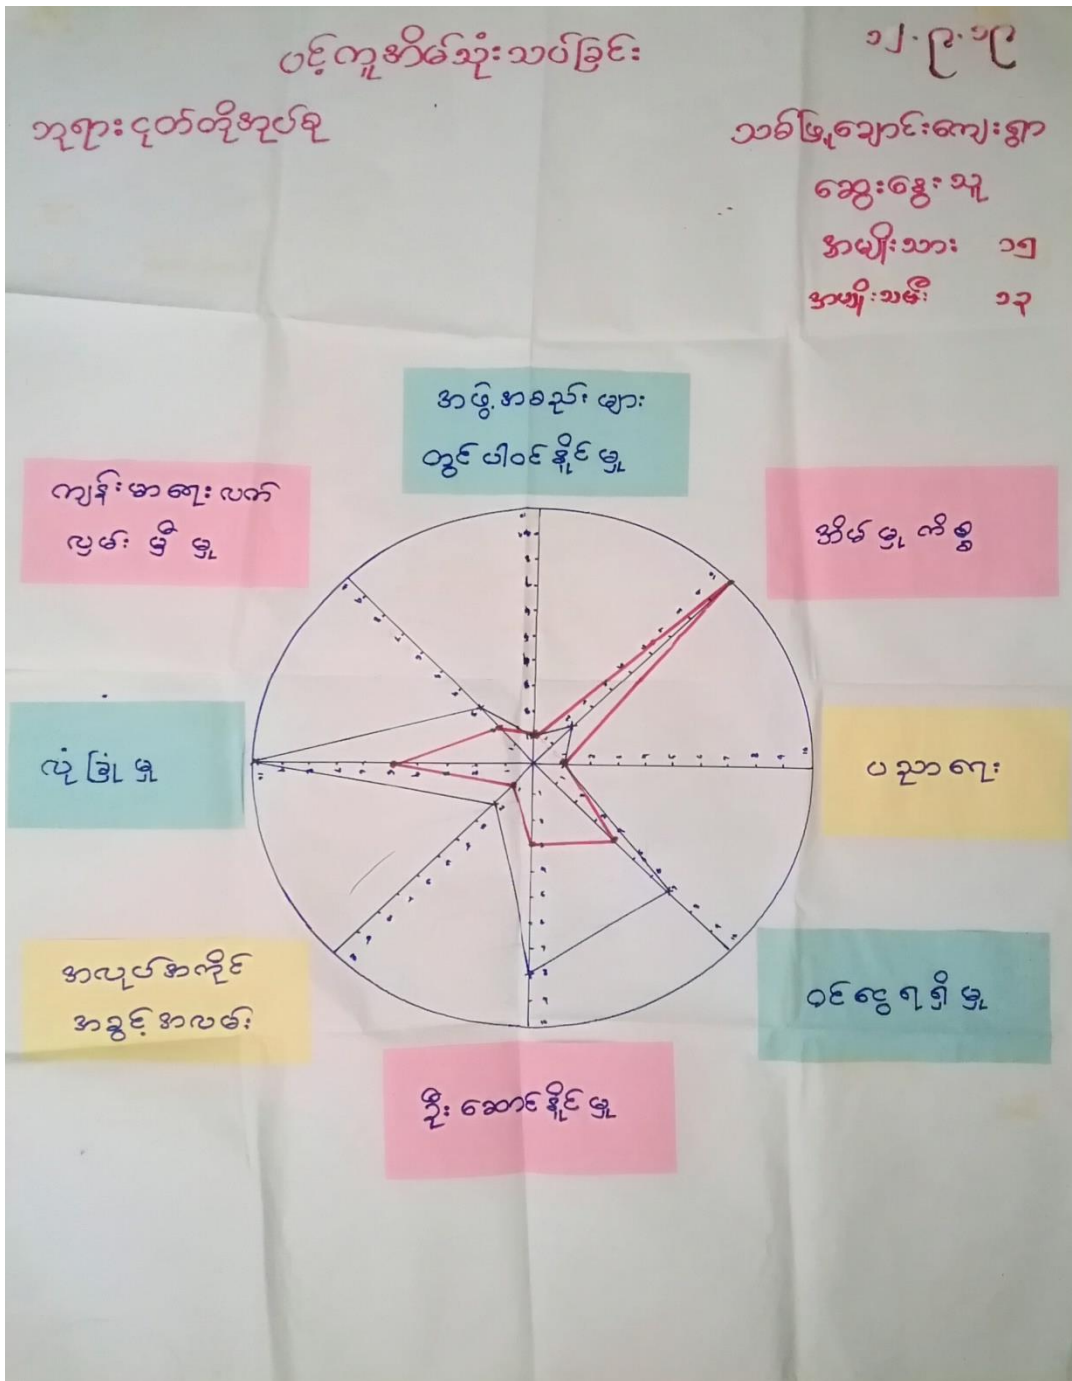 ပင့်ကူအိမ်သုံးသပ်ခြင်း
၁၂.၉.၁၉
ဘုရားငုတ်တိုအုပ်စု
သစ်ဖြူချောင်းကျေးရွာ
ဆွေးနွေးသူ
အမျိုးသား ၁၅
အမျိုးသမီး ၁၃
အဖွဲ့အစည်းများ
တွင်ပါဝင်နိုင်မှု
ကျန်းမာရေးလက်
လှမ်းမှီမှု
အိမ်မှုကိစ္စ
လုံခြုံမှု
ပညာရေး
အလုပ်အကိုင်
အခွင့်အလမ်း
ဝင်ငွေရရှိမှု
ဦးဆောင်နိုင်မှု